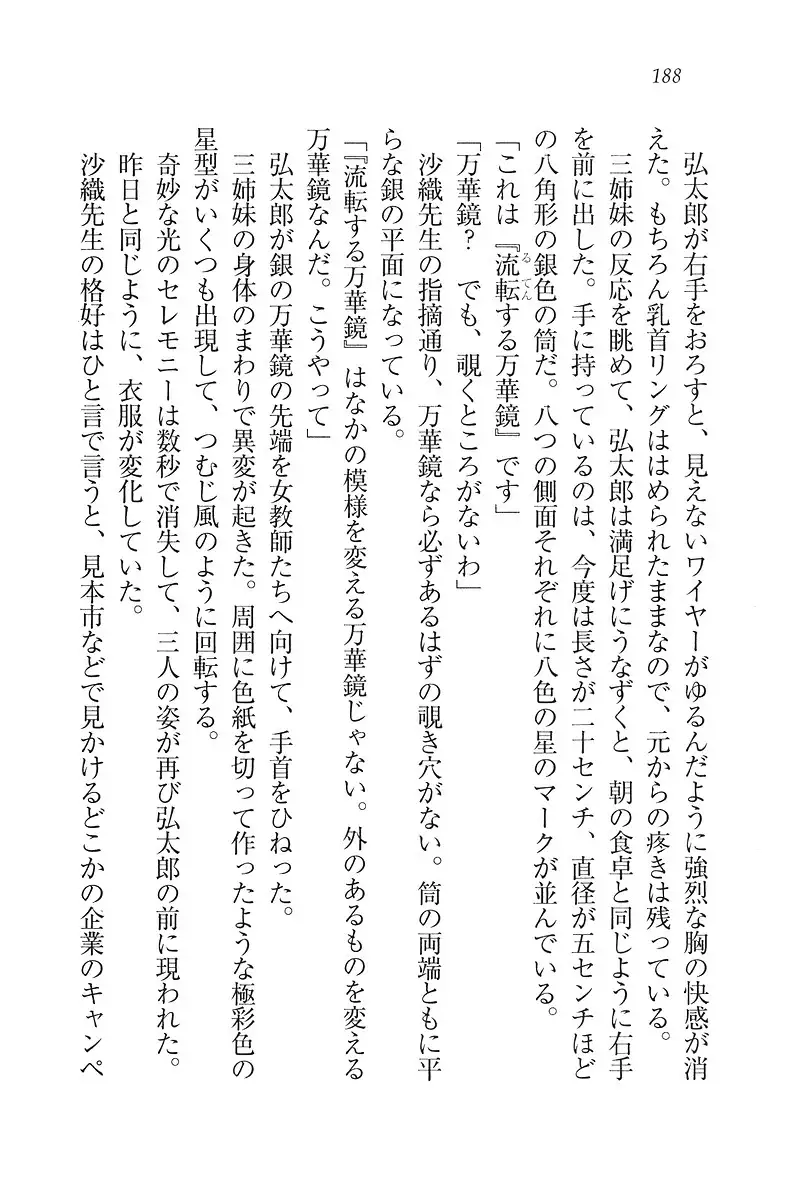 188
弘太郎が右手をおろすと、見えないワイヤーがゆるんだように強烈な胸の快感が消
えた。もちろん乳首リングははめられたままなので、元からの疼きは残っている。
三姉妹の反応を眺めて、弘太郎は満足げにうなずくと、朝の食卓と同じように右手
を前に出した。手に持っているのは、今度は長さが二十センチ、直径が五センチほど
の八角形の銀色の筒だ。八つの側面それぞれに八色の星のマークが並んでいる。
「これは『流転する万華鏡』です」
「万華鏡？　でも、覗くところがないわ」
沙織先生の指摘通り、万華鏡なら必ずあるはずの覗き穴がない。筒の両端ともに平
らな銀の平面になっている。
「『流転する万華鏡』はなかの模様を変える万華鏡じゃない。外のあるものを変える
万華鏡なんだ。こうやって」
弘太郎が銀の万華鏡の先端を女教師たちへ向けて、手首をひねった。
三姉妹の身体のまわりで異変が起きた。周囲に色紙を切って作ったような極彩色の
星型がいくつも出現して、つむじ風のように回転する。
奇妙な光のセレモニーは数秒で消失して、三人の姿が再び弘太郎の前に現われた。
昨日と同じように、衣服が変化していた。
沙織先生の格好はひと言で言うと、見本市などで見かけるどこかの企業のキャンペ